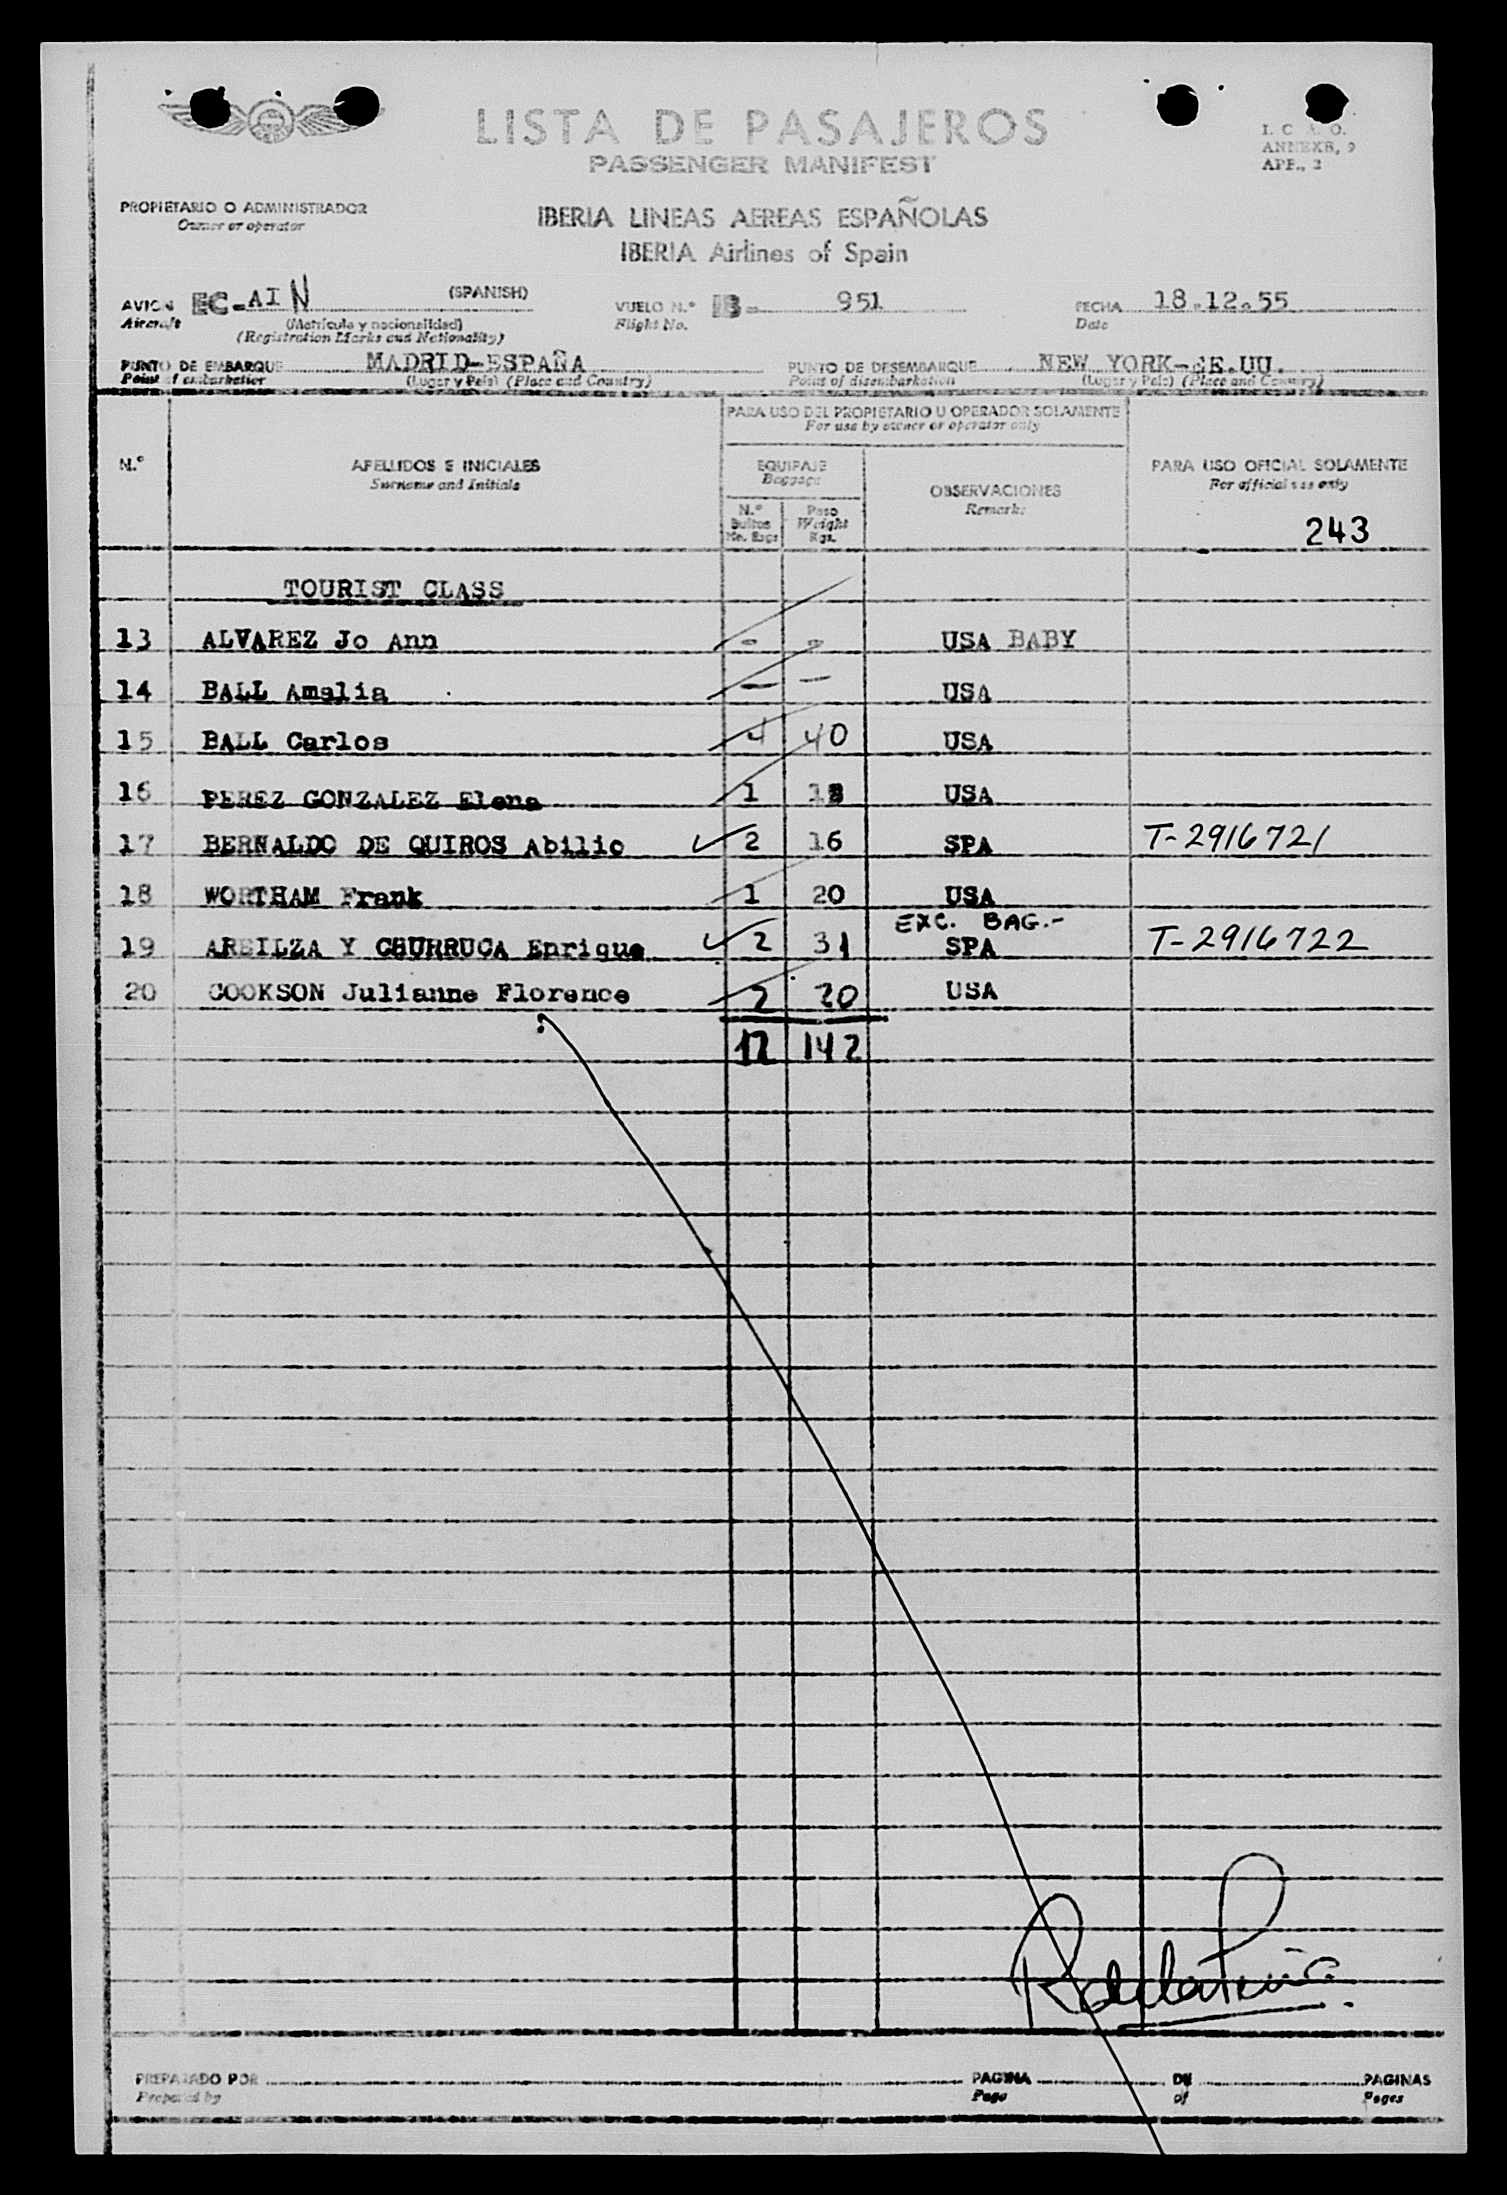 LISTA DE PASAJEROS
PASSENGER MANIFEST
I. C. A. O.
ANNEXE, 9
APP., 2
PROPIETARIO O ADMINISTRADOR
Owner or operator
IBERIA LINEAS AEREAS ESPAÑOLAS
IBERIA Airlines of Spain
AVION EC-AIN (SPANISH)
Aircraft (Matrícula y nacionalidad)
(Registration Marks and Nationality)
VUELO N.° IB- 951
Flight No.
FECHA 18.12.55
Date
PUNTO DE EMBARQUE MADRID-ESPAÑA
Point of embarkation (Lugar y País) (Place and Country)
PUNTO DE DESEMBARQUE NEW YORK-EE.UU.
Point of disembarkation (Lugar y País) (Place and Country)
PARA USO DEL PROPIETARIO U OPERADOR SOLAMENTE
For use by owner or operator only
N.°
APELLIDOS E INICIALES
Surname and Initials
EQUIPAJE
Baggage
N.° Bultos
No. Bags
Peso
Weight
Kgs.
OBSERVACIONES
Remarks
PARA USO OFICIAL SOLAMENTE
For official use only
243
TOURIST CLASS
13 ALVAREZ Jo Ann - - USA BABY
14 BALL Amalia - - USA
15 BALL Carlos 4 40 USA
16 PEREZ GONZALEZ Elena 1 USA
17 BERNALDO DE QUIROS Abilio 2 16 SPA T-2916721
18 WORTHAM Frank 1 20 USA
EXC. BAG.-
19 AREILZA Y CHURRUCA Enrique 2 31 SPA T-2916722
20 COOKSON Julianne Florence 2 20 USA
12 142
PREPARADO POR PAGINA DE PAGINAS
Prepared by Page of Pages